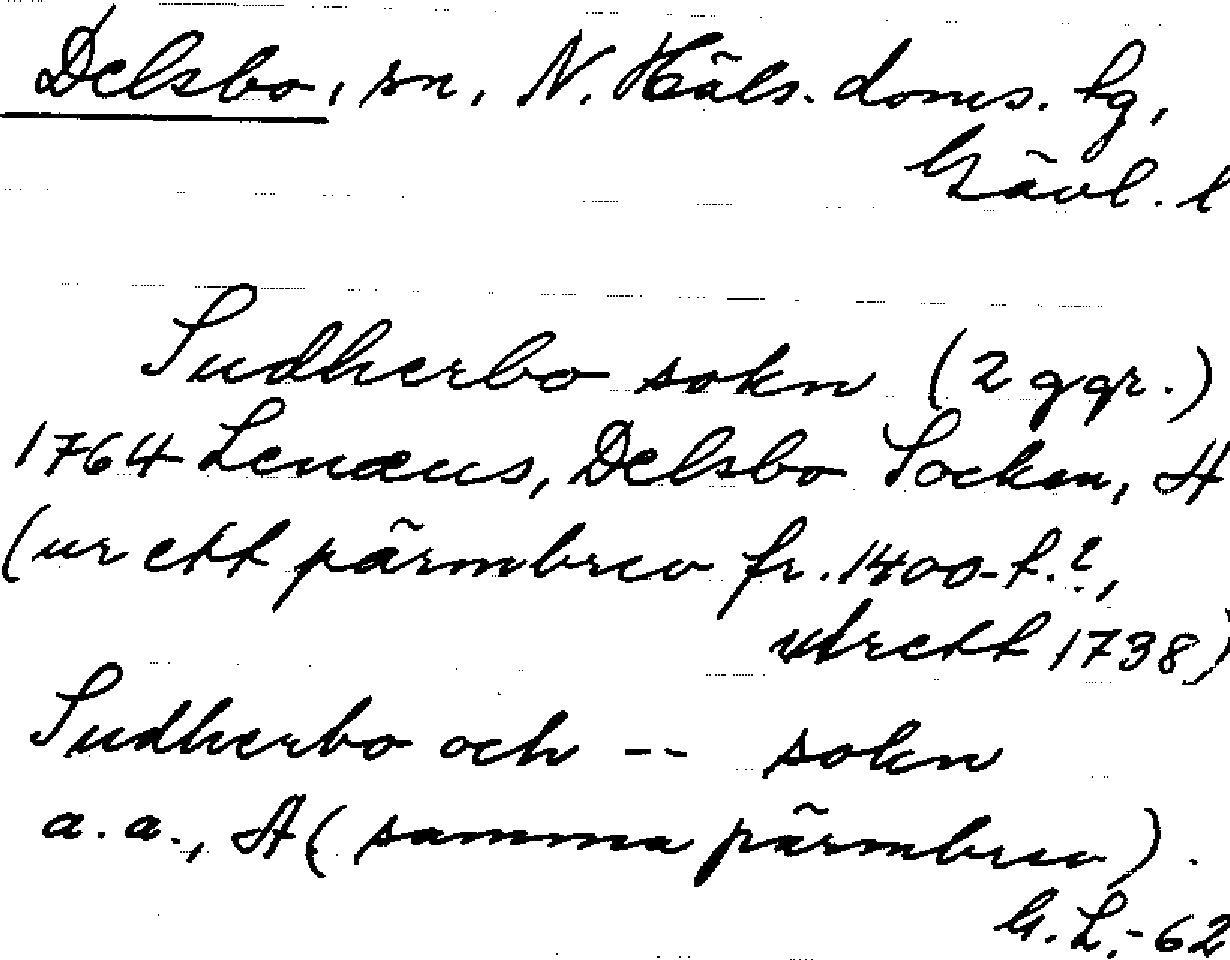 Delsbo, sn, N. Häls. doms. tg,
Gävl. l
Sudherbo sokn (2 ggr.)
1764 Lenæus, Delsbo Socken, A
(ur ett pärmbrev fr. 1400-t.?,
utrett 1738)
Sudherbo och -- sokn
a.a., A (samma pärmbrev).
G.L.-62